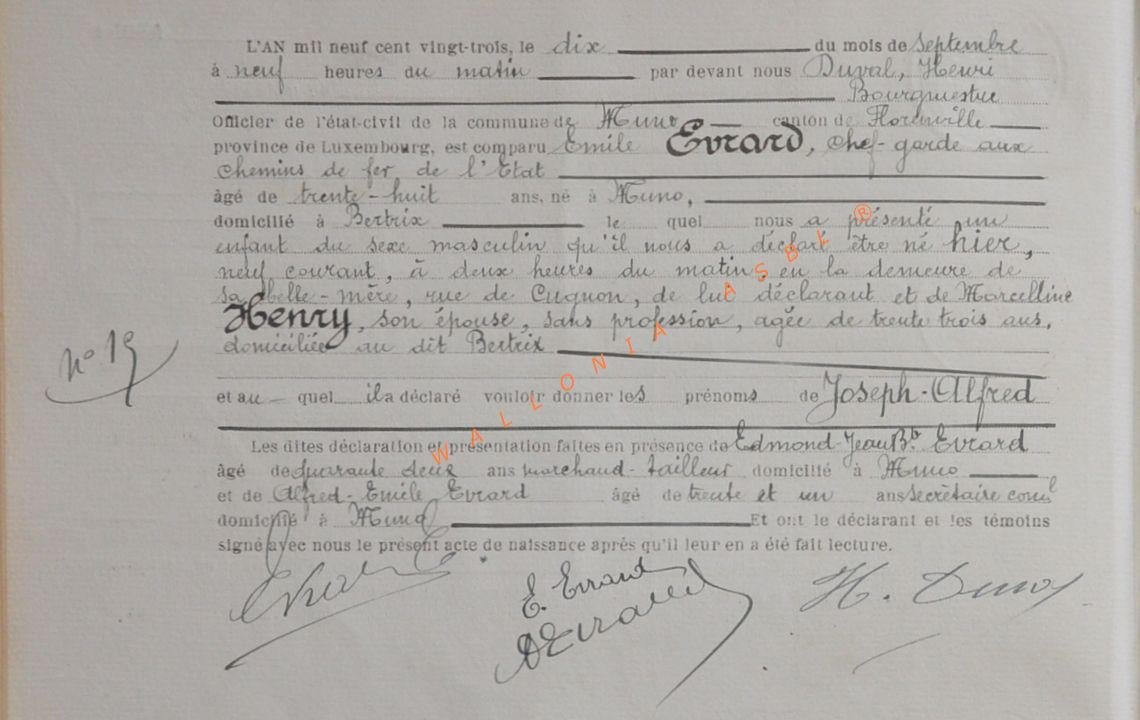 L'AN mil neuf cent vingt-trois, le dix du mois de Septembre
à neuf heures du matin par devant nous Duval, Henri
Bourgmestre
Officier de l'état-civil de la commune de Muno canton de Florenville
province de Luxembourg, est comparu Emile Evrard, chef-garde aux
chemins de fer de l'Etat
âgé de trente-huit ans, né à Muno,
domicilié à Bertrix le quel nous a présenté un
enfant du sexe masculin qu'il nous a déclaré être né hier,
neuf courant, à deux heures du matin, en la demeure de
sa belle-mère, rue de Cugnon, de lui déclarant et de Marcelline
Henry, son épouse, sans profession, agée de trente trois ans,
domiciliée au dit Bertrix
nº 19
et au quel il a déclaré vouloir donner les prénoms de Joseph-Alfred
Les dites déclaration et présentation faites en présence de Edmond-Jean Bte Evrard
âgé de quarante deux ans marchand-tailleur domicilié à Muno
et de Alfred-Emile Evrard âgé de trente et un ans secrétaire comal
domicilié à Muno Et ont le déclarant et les témoins
signé avec nous le présent acte de naissance après qu'il leur en a été fait lecture.
E. Evrard
AEvrard
H. Duval
WALLONIA ASBL ®